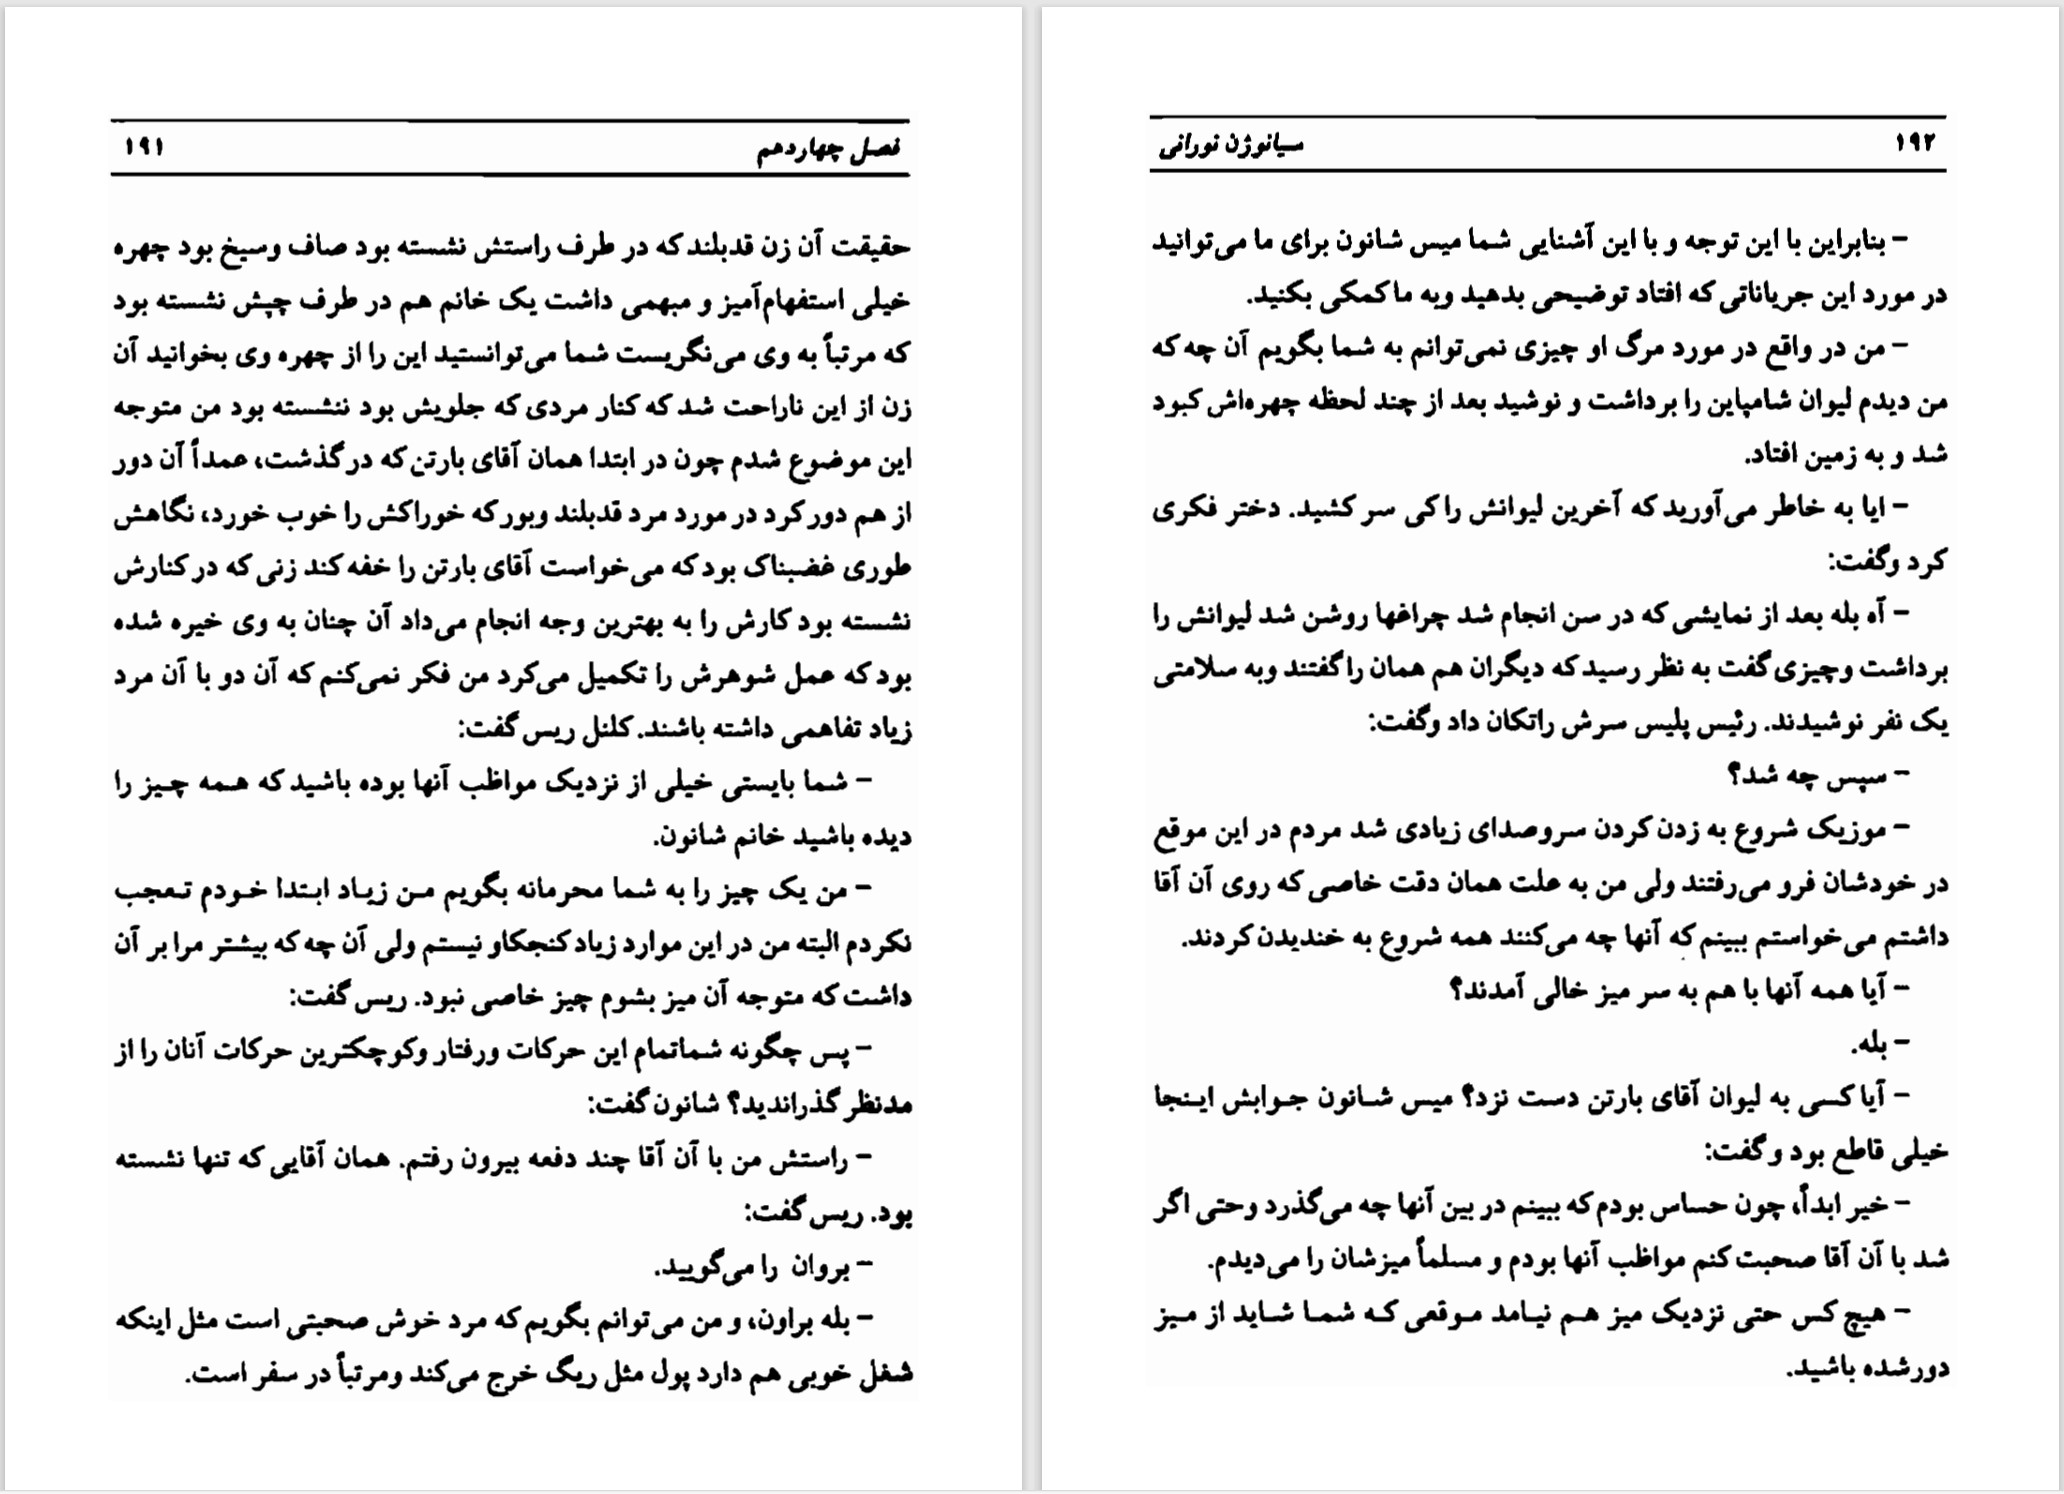 فصل چهاردهم ۱۹۱
حقیقت آن زن قدبلند که در طرف راستش نشسته بود صاف وسیخ بود چهره
خیلی استفهام‌آمیز و مبهمی داشت یک خانم هم در طرف چپش نشسته بود
که مرتباً به وی می‌نگریست شما می‌توانستید این را از چهره وی بخوانید آن
زن از این ناراحت شد که کنار مردی که جلویش بود ننشسته بود من متوجه
این موضوع شدم چون در ابتدا همان آقای بارتن که درگذشت، عمداً آن دور
از هم دور کرد در مورد مرد قدبلند وبور که خوراکش را خوب خورد، نگاهش
طوری غضبناک بود که می‌خواست آقای بارتن را خفه کند زنی که در کنارش
نشسته بود کارش را به بهترین وجه انجام می‌داد آن چنان به وی خیره شده
بود که عمل شوهرش را تکمیل می‌کرد من فکر نمی‌کنم که آن دو با آن مرد
زیاد تفاهمی داشته باشند. کلنل ریس گفت:
– شما بایستی خیلی از نزدیک مواظب آنها بوده باشید که همه چیز را
دیده باشید خانم شانون.
– من یک چیز را به شما محرمانه بگویم من زیاد ابتدا خودم تعجب
نکردم البته من در این موارد زیاد کنجکاو نیستم ولی آن چه که بیشتر مرا بر آن
داشت که متوجه آن میز بشوم چیز خاصی نبود. ریس گفت:
– پس چگونه شماتمام این حرکات ورفتار وکوچکترین حرکات آنان را از
مدنظر گذراندید؟ شانون گفت:
– راستش من با آن آقا چند دفعه بیرون رفتم. همان آقایی که تنها نشسته
بود. ریس گفت:
– بروان را می‌گویید.
– بله براون، و من می‌توانم بگویم که مرد خوش صحبتی است مثل اینکه
شغل خوبی هم دارد پول مثل ریگ خرج می‌کند ومرتباً در سفر است.
۱۹۲ سیانوژن نورانی
– بنابراین با این توجه و با این آشنایی شما میس شانون برای ما می‌توانید
در مورد این جریاناتی که افتاد توضیحی بدهید وبه ما کمکی بکنید.
– من در واقع در مورد مرگ او چیزی نمی‌توانم به شما بگویم آن چه که
من دیدم لیوان شامپاین را برداشت و نوشید بعد از چند لحظه چهره‌اش کبود
شد و به زمین افتاد.
– ایا به خاطر می‌آورید که آخرین لیوانش را کی سر کشید. دختر فکری
کرد وگفت:
– آه بله بعد از نمایشی که در سن انجام شد چراغها روشن شد لیوانش را
برداشت وچیزی گفت به نظر رسید که دیگران هم همان را گفتند وبه سلامتی
یک نفر نوشیدند. رئیس پلیس سرش راتکان داد وگفت:
– سپس چه شد؟
– موزیک شروع به زدن کردن سروصدای زیادی شد مردم در این موقع
در خودشان فرو می‌رفتند ولی من به علت همان دقت خاصی که روی آن آقا
داشتم می‌خواستم ببینم که آنها چه می‌کنند همه شروع به خندیدن کردند.
– آیا همه آنها با هم به سر میز خالی آمدند؟
– بله.
– آیا کسی به لیوان آقای بارتن دست نزد؟ میس شانون جوابش اینجا
خیلی قاطع بود و گفت:
– خیر ابداً، چون حساس بودم که ببینم در بین آنها چه می‌گذرد وحتی اگر
شد با آن آقا صحبت کنم مواظب آنها بودم و مسلماً میزشان را می‌دیدم.
– هیچ کس حتی نزدیک میز هم نیامد موقعی که شما شاید از میز
دورشده باشید.